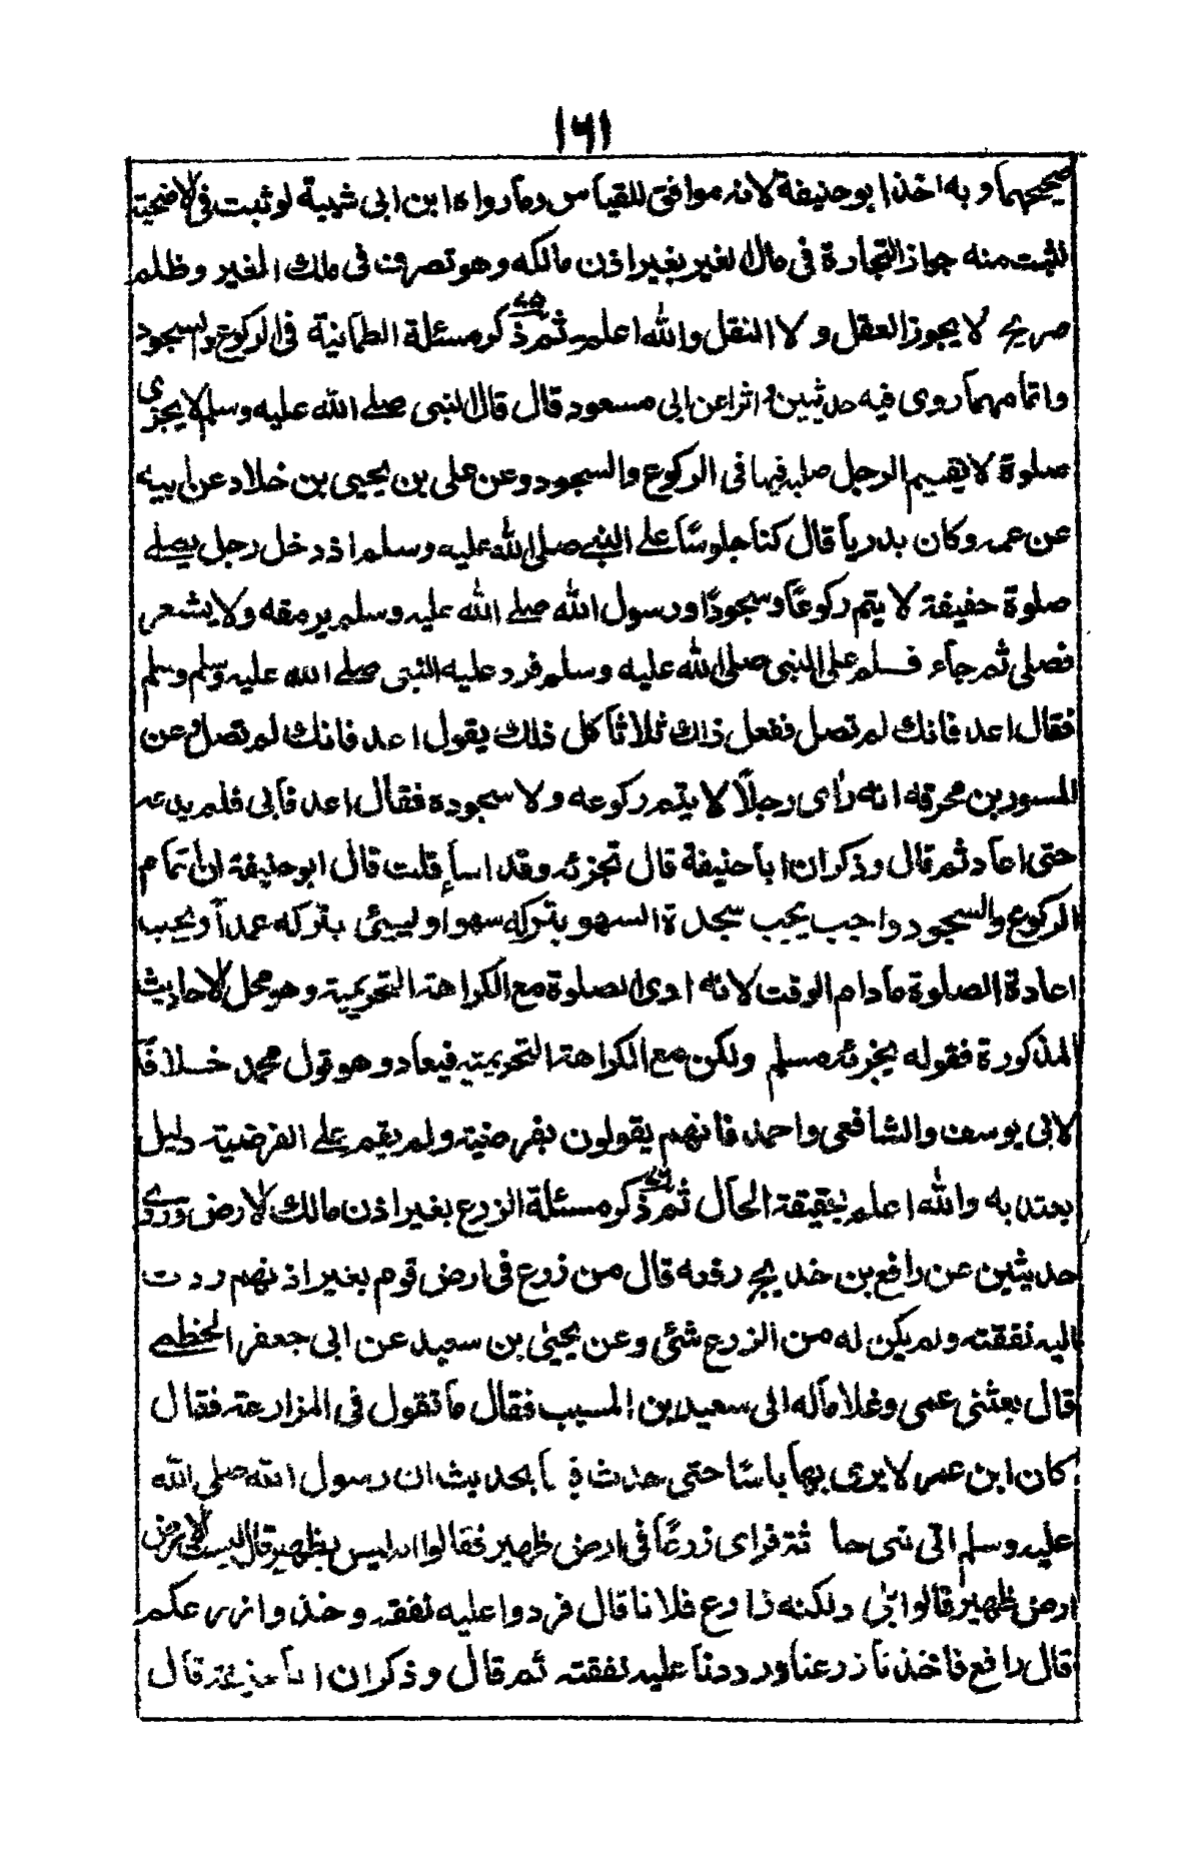 ١٦١
صحيحهما وبه اخذ ابوحنيفة لانه موافق للقياس وما رواه ابن ابى شيبة لو ثبت فى الاضحية
لثبت منه جواز التجارة فى مال الغير بغير اذن مالكه وهو تصرف فى ملك الغير وظلم
صريح لا يجوز العقل ولا النقل والله اعلم ثم ذكر مسئلة الطمانية فى الركوع والسجود
واتمامهما روى فيه حديثين واثرا عن ابى مسعود قال قال النبى صلے الله عليه وسلم لا يجزى
صلوة لا يقيم الرجل صلبه فيها فى الركوع والسجود وعن على بن يحيى بن خلاد عن ابيه
عن عمه وكان بدريا قال كنا جلوسًا علے النبے صلى الله عليه وسلم اذ دخل رجل يصلے
صلوة خفيفة لا يتم ركوعًا وسجودًا ورسول الله صلے الله عليه وسلم يرمقه ولا يشعر
فصلى ثم جاء فسلم على النبى صلى الله عليه وسلم فرد عليه النبى صلے الله عليه وسلم وسلم
فقال اعد فانك لم تصل ففعل ذلك ثلاثا كل ذلك يقول اعد فانك لم تصل وعن
المسور بن مخرقه انه راى رجلًا لا يتم ركوعه ولا سجوده فقال اعد فابى فلم يدعه
حتى اعاد ثم قال وذكر ان ابا حنيفة قال تجزئه وقد اساء قلت قال ابوحنيفة ان اتمام
الركوع والسجود واجب يجب سجدة السهو بتركه سهوا ويسيئ بتركه عمدا ويجب
اعادة الصلوة مادام الوقت لانه ادى الصلوة مع الكراهة التحريمية وهو محل الاحاديث
المذكورة فقوله يجزئه مسلم ولكن مع الكراهة التحريمية فيعاد وهو قول محمد خلافا
لابى يوسف والشافعى واحمد فانهم يقولون بفرضية ولم يقم علے الفرضية دليل
يعتد به والله اعلم بحقيقة الحال ثم ذكر مسئلة الزرع بغير اذن مالك الارض وروے
حديثين عن رافع بن خديج رفعه قال من زرع فى ارض قوم بغير اذنهم ردت
اليه نفقته ولم يكن له من الزرع شئى وعن يحيىٰ بن سعيد عن ابى جعفر الخطمے
قال بعثنى عمى وغلاما له الى سعيد بن المسيب فقال ما تقول فى المزارعة فقال
كان ابن عمر لا يرى بها باسًا حتى حدث بحديث ان رسول الله صلى الله
عليه وسلم اتى بنى حا ثة فراى زرعًا فى ارض ظهير فقالوا انه ليس بظهير قال اليست الارض
ارض ظهير قالوا بلى ولكنه زارع فلانا قال فردوا عليه نفقته وخذوا زرعكم
قال رافع فاخذنا زرعنا ورددنا عليه نفقته ثم قال وذكر ان ابا حنيفة قال